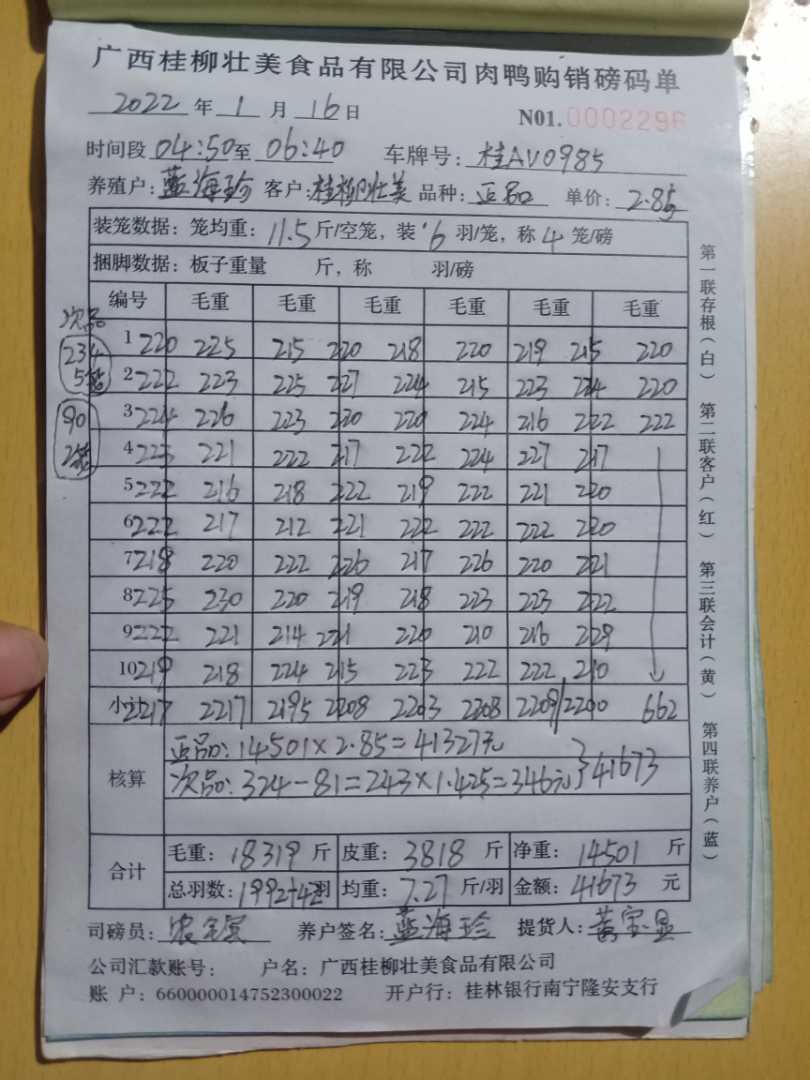 广西桂柳壮美食品有限公司肉鸭购销磅码单
2022 年 1 月 16 日 N01. 0002296
时间段 04:50 至 06:40 车牌号: 桂AV0985
养殖户: 蓝海珍 客户: 桂柳壮美 品种: 正品 单价: 2.85
装笼数据: 笼均重: 11.5 斤/空笼, 装 6 羽/笼, 称 4 笼/磅
捆脚数据: 板子重量 斤, 称 羽/磅
编号 毛重 毛重 毛重 毛重 毛重 毛重
次品
234
5笼
90
2笼
1 220 225 215 220 218 220 219 215 220
2 222 223 225 227 224 215 223 224 220
3 224 226 223 220 220 224 216 222 222
4 225 221 222 217 222 224 227 217
5 222 216 218 222 219 222 221 220
6 222 217 212 221 222 222 222 220
7 218 220 222 226 217 226 220 221
8 225 230 220 219 218 223 223 222
9 222 221 214 221 220 210 216 229
10 219 218 224 215 223 222 222 210
小计 2217 2217 2195 2208 2203 2208 2209 2200 662
核算
正品: 14501×2.85=41327元
次品: 324-81=243×1.425=346元 } 41673
合计
毛重: 18319 斤 皮重: 3818 斤 净重: 14501 斤
总羽数: 1992+42羽 均重: 7.27 斤/羽 金额: 41673 元
司磅员: 养户签名: 蓝海珍 提货人: 黄宝显
公司汇款账号: 户名: 广西桂柳壮美食品有限公司
账 户: 660000014752300022 开户行: 桂林银行南宁隆安支行
第一联存根(白) 第二联客户(红) 第三联会计(黄) 第四联养户(蓝)